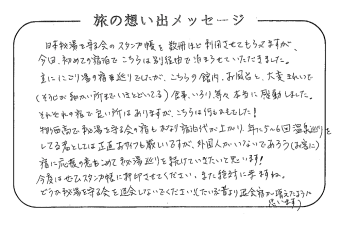 旅の想い出メッセージ
日本秘湯を守る会のスタンプ帳を数冊ほど利用させてもらってますが、
今回、初めての宿泊でこちらは別経由で泊まらせていただきました。
主ににごり湯の宿を巡りでしたが、こちらの館内、お風呂と、大変きれいで
(そうじが細かい所までいきとどいてる)食事、いろり等々本当に感動しました。
それぞれの宿で良い所はありますが、こちらは何ともでした！
物価高で秘湯を守る会の宿もかなり宿泊代が上がり、年に5〜6回温泉巡りを
してる者としては正直おサイフも厳しいですが、外国人がいないであろう(お客に)
宿に応援の意もこめて秘湯巡りを続けていきたいと思います！
今度はぜひスタンプ帳に押印させてください、また絶対に来ますね。
どうか秘湯を守る会を退会しないでください(だいぶ昔より退会宿が増えたように
思います)